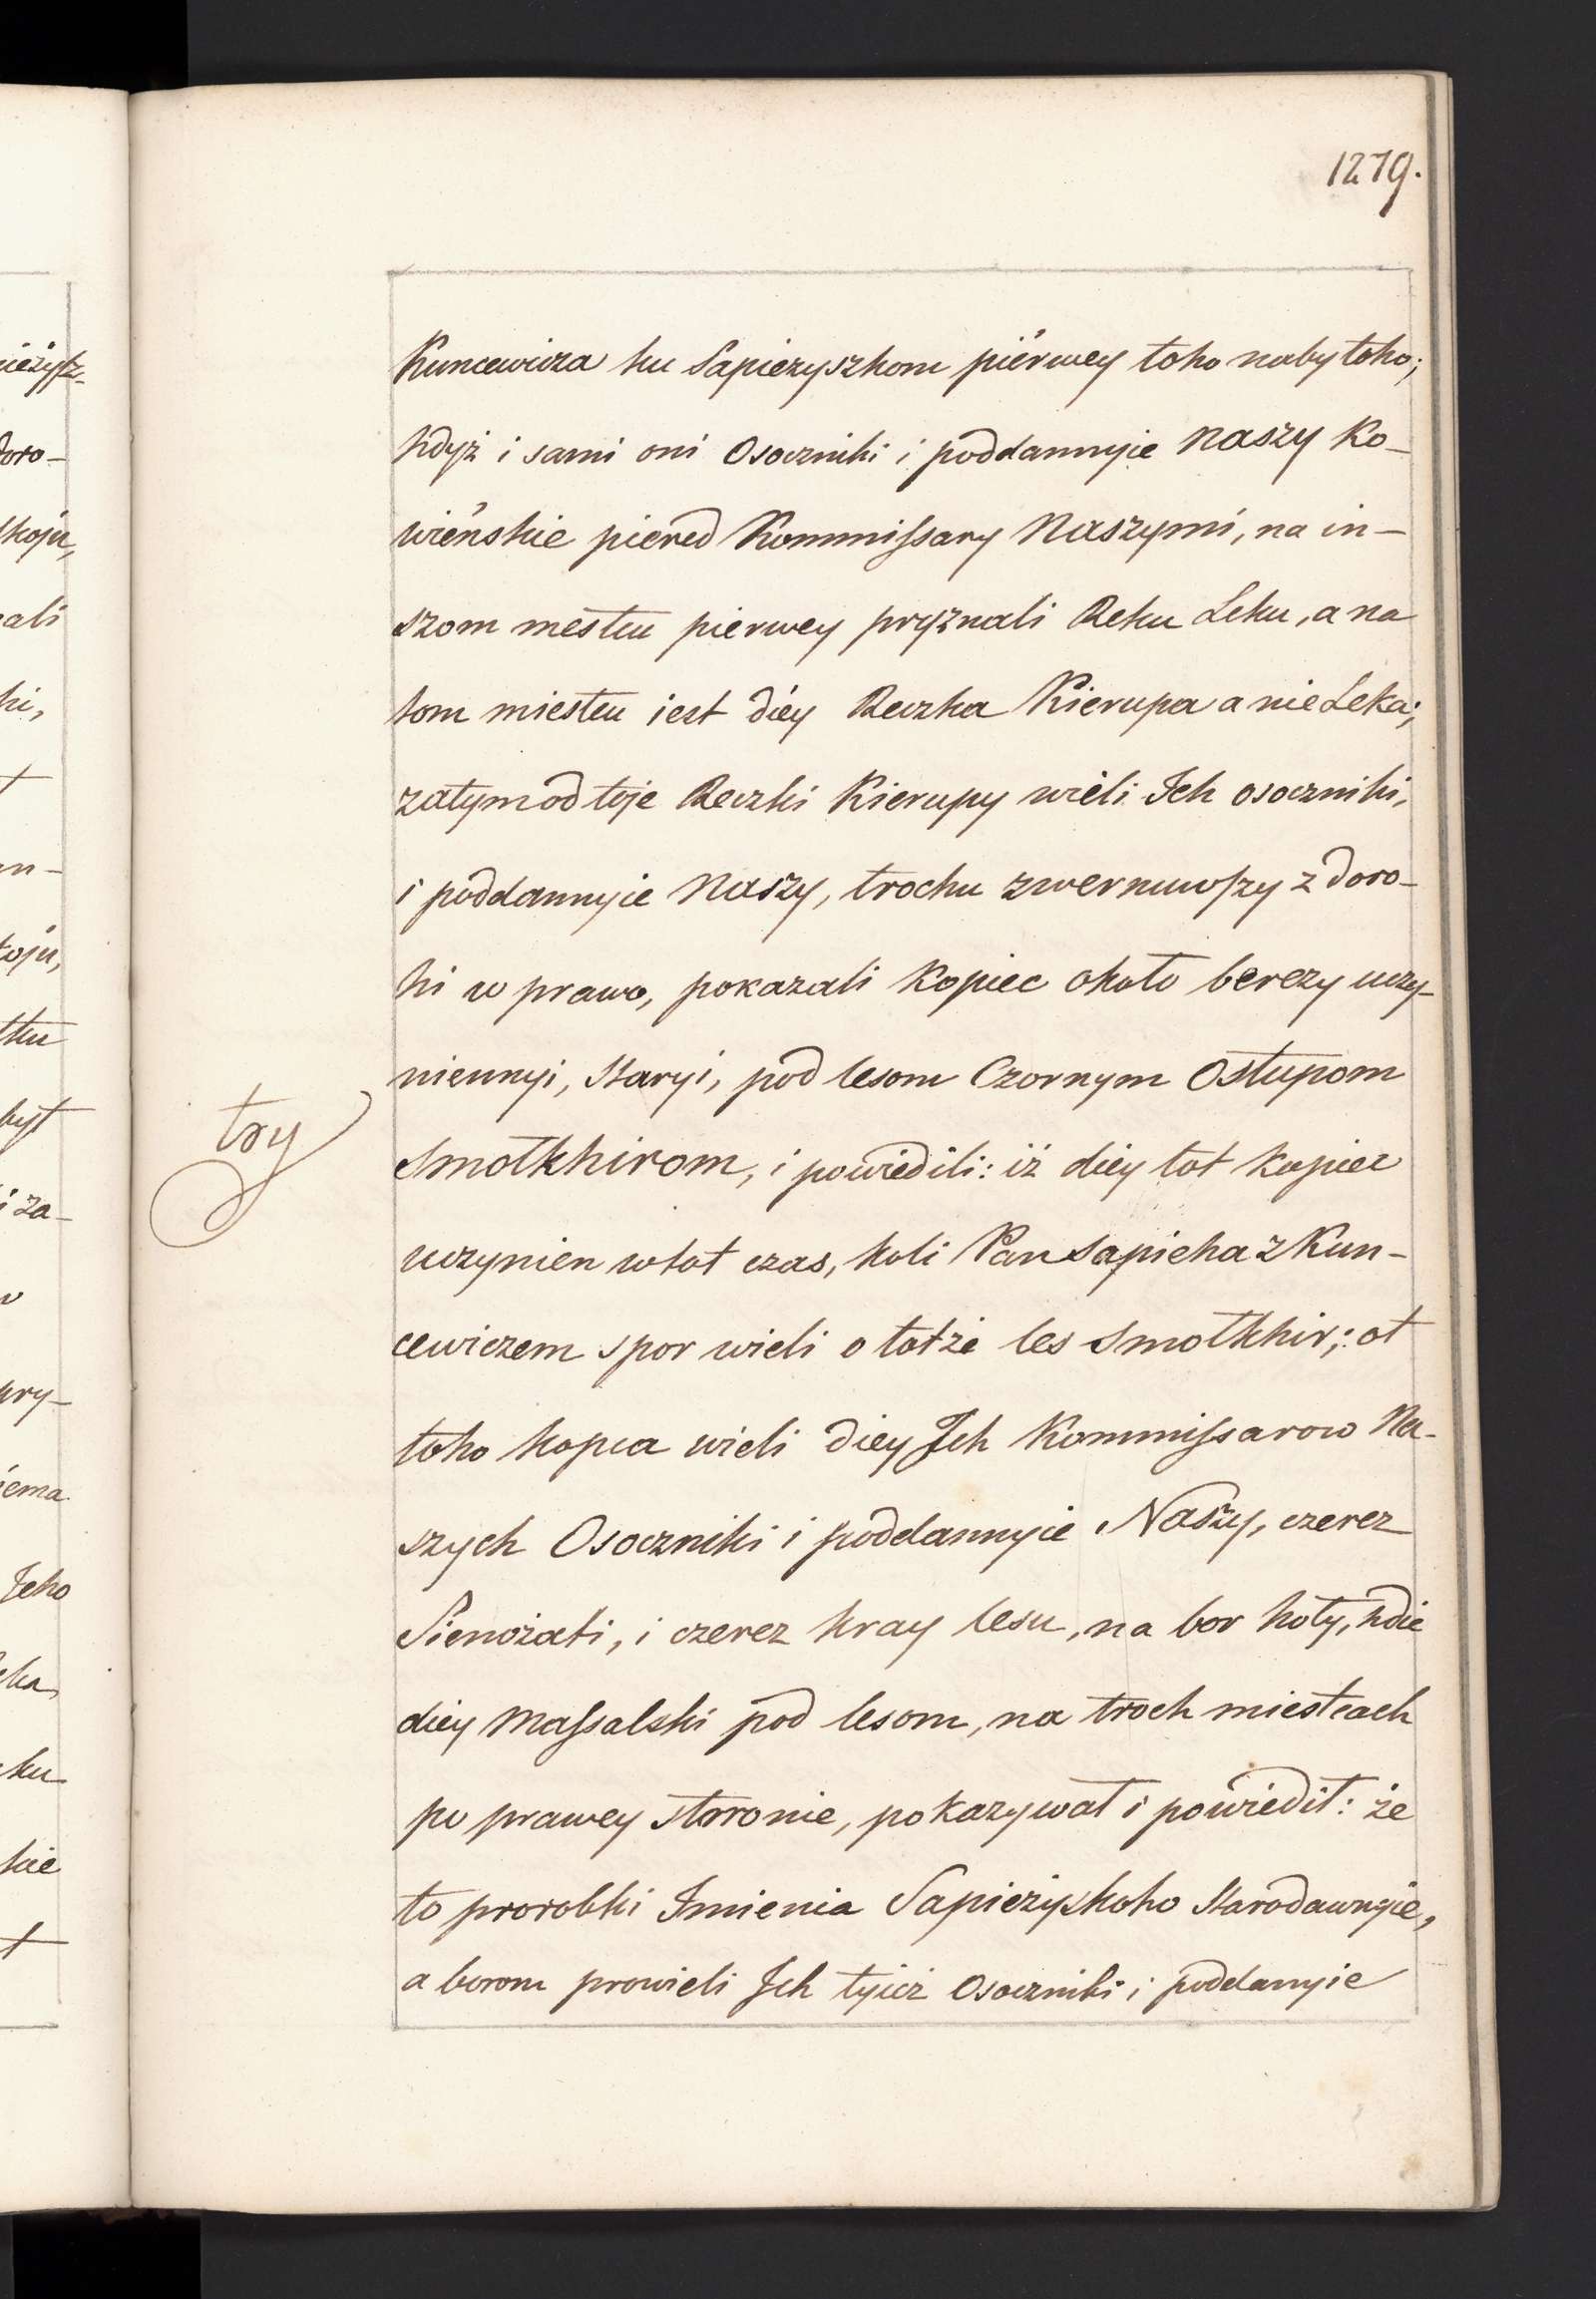 1279.
Kuncewicza ku Sapiezyszkom pierwey toho nabytoho;
hdyż i sami oni Osoczniki i poddannyie Naszy Ko-
wieńskie piered Kommissary Naszymi, na in-
szom mestcu pierwey pryznali Reku Leku, a na
tom miestcu iest diey Reczka Kierupa a nie Leka;
zatym od toje Reczki Kierupy wieli Ich osoczniki,
i poddannyie Naszy, trochu zwernuwszy z doro-
hi w prawo, pokazali Kopiec około berezy uczy-
niennyi, staryi, pod lesom Czornym Ostupom
try
Smołkhirom, i powiedili: iż diey tot kopiec
uczynien wtot czas, koli Pan Sapieha z Kun-
cewiczem spor wieli o totże les Smołkhir; ot
toho kopca wieli diey Ich Kommissarow Na-
szych Osoczniki i poddannyie Naszy, czerez
Sienożati, i czerez kray lesu, na bor hoły, hdie
diey Massalski pod lesom, na troch miestcach
po prawey storonie, pokazywał i powiedił: że
to prorobki Imienia Sapieżyskoho starodawnyie,
a borom prowieli Ich tyież Osoczniki i poddanyie